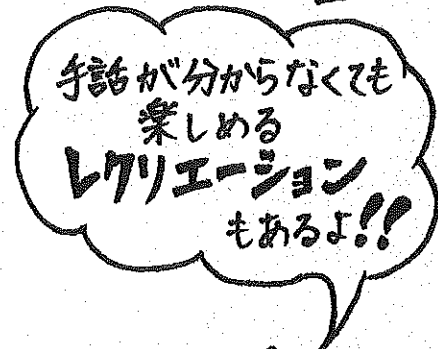 手話が分からなくても
楽しめる
レクリエーション
もあるよ!!